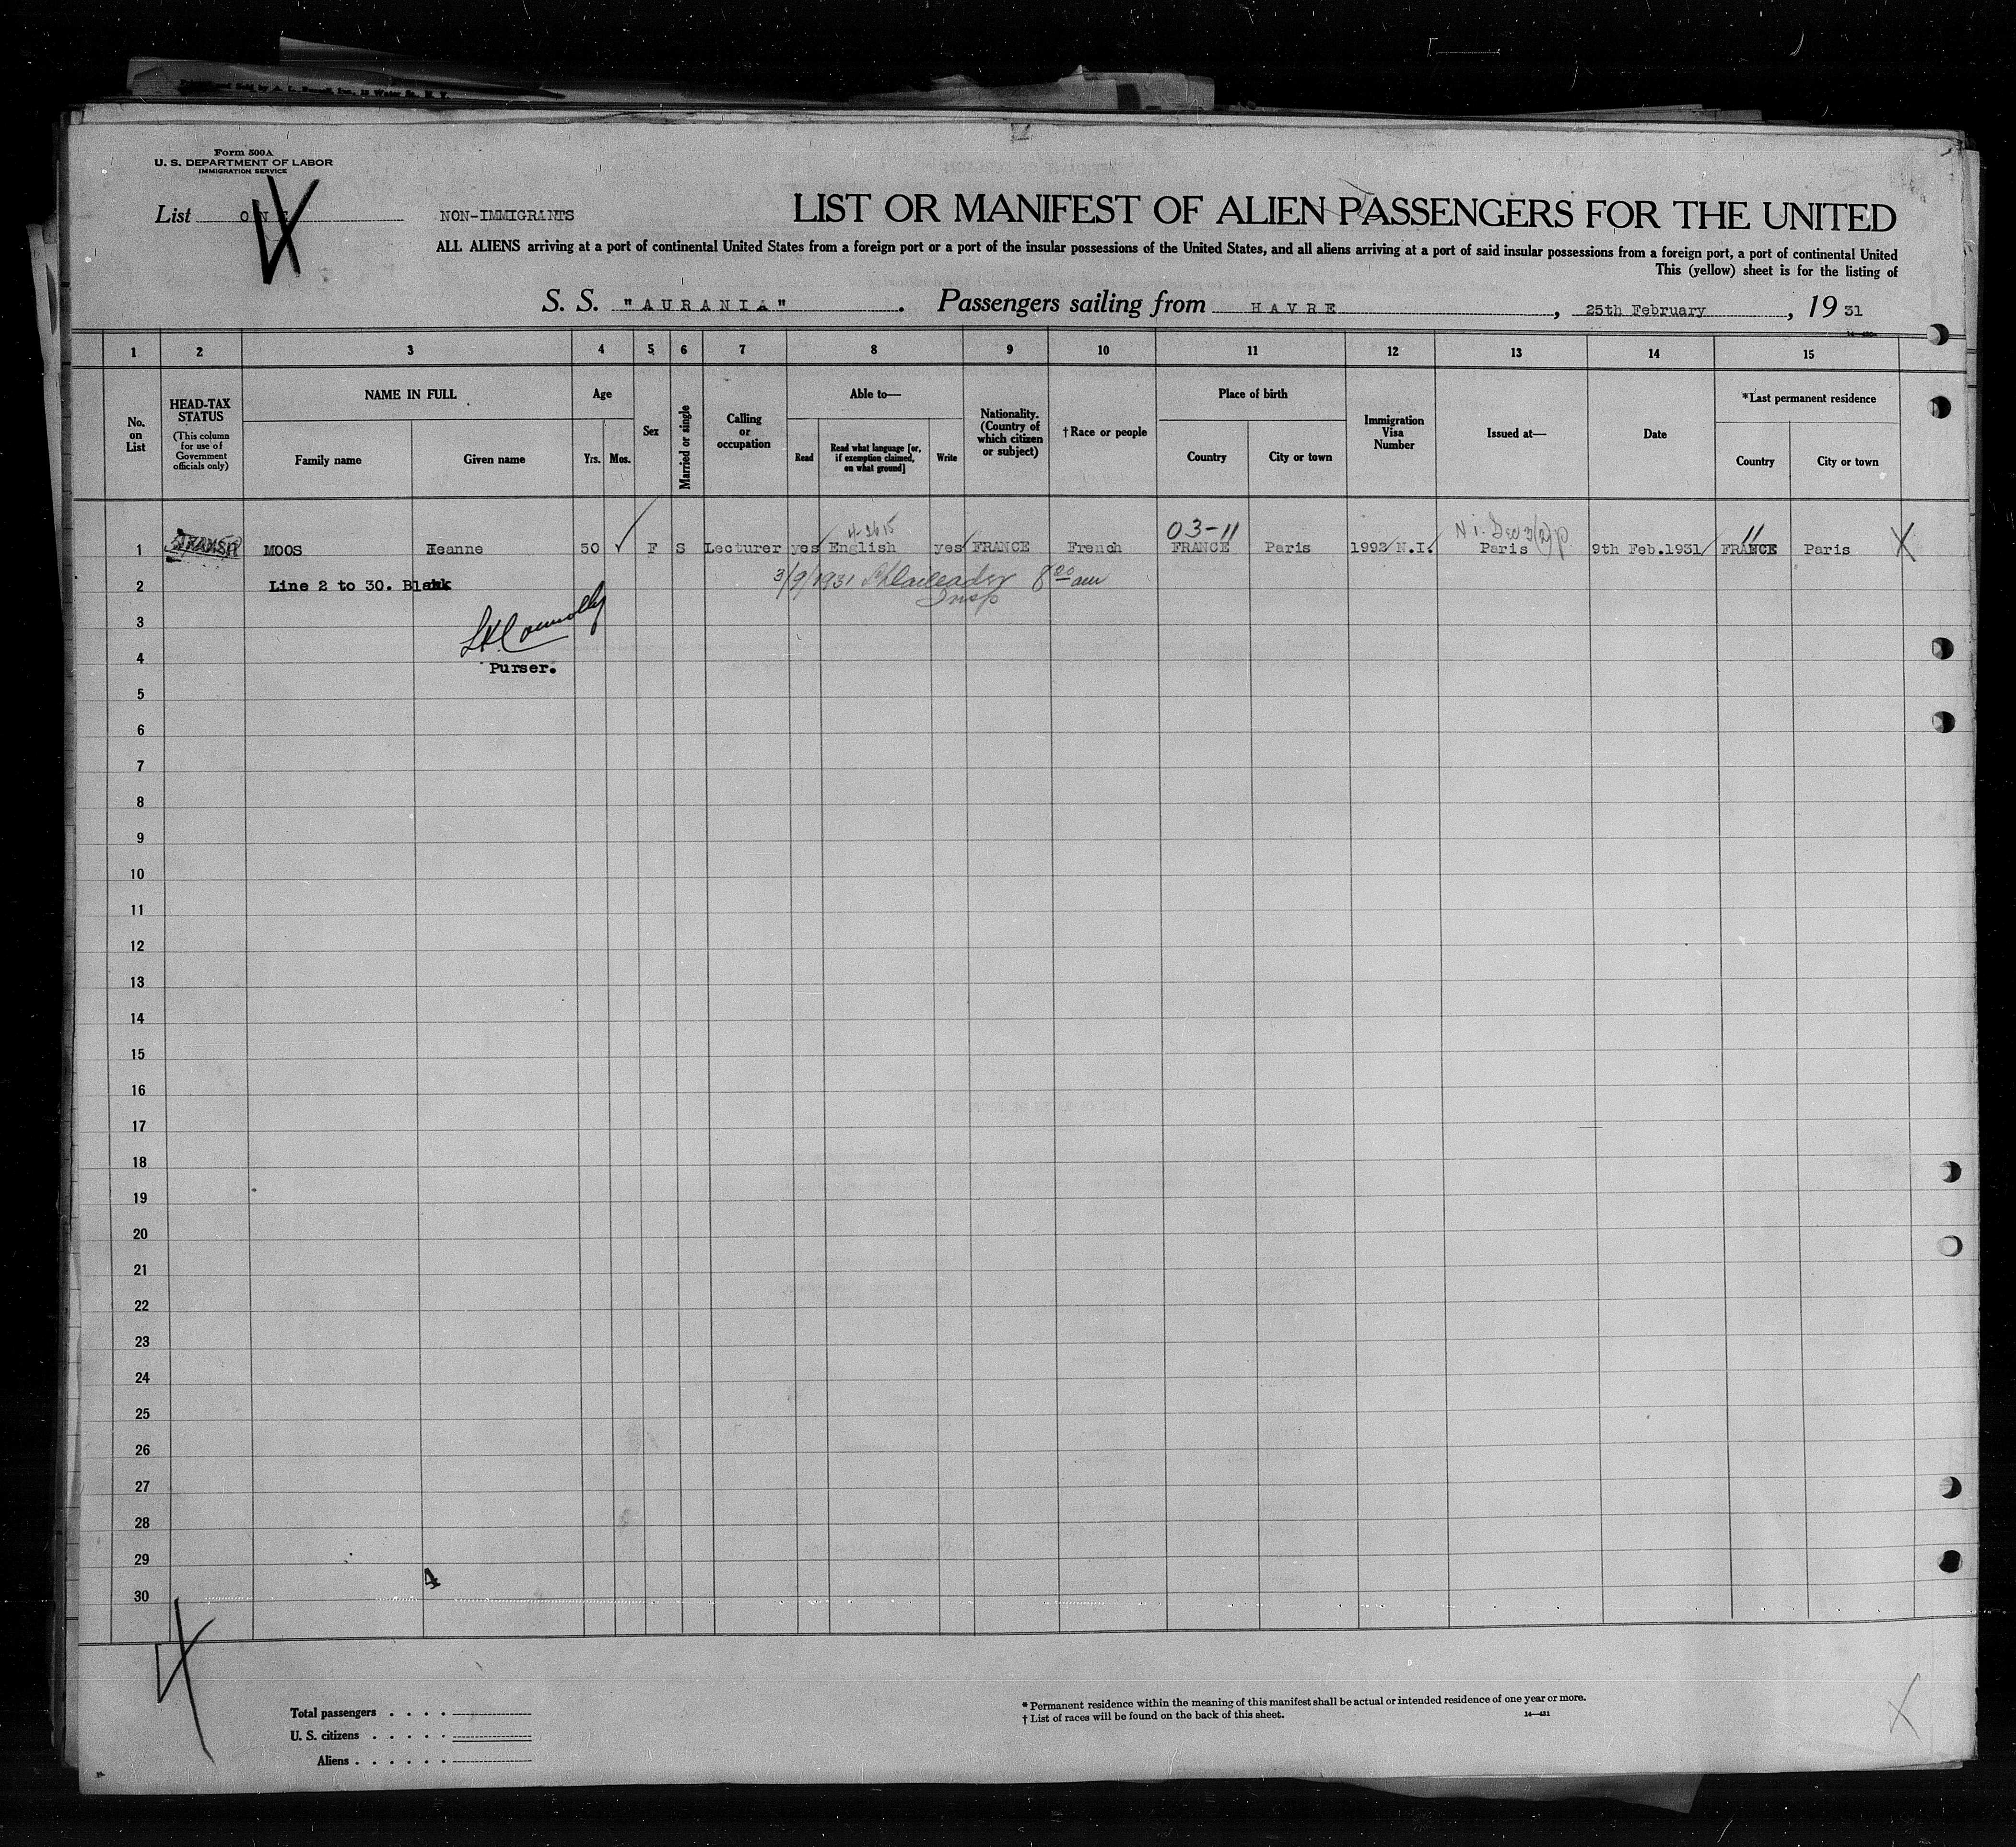 Form 500A
U. S. DEPARTMENT OF LABOR
IMMIGRATION SERVICE
List ONE
NON-IMMIGRANTS
LIST OR MANIFEST OF ALIEN PASSENGERS FOR THE UNITED
ALL ALIENS arriving at a port of continental United States from a foreign port or a port of the insular possessions of the United States, and all aliens arriving at a port of said insular possessions from a foreign port, a port of continental United
This (yellow) sheet is for the listing of
S. S. "AURANIA". Passengers sailing from HAVRE, 25th February, 19 31
1 2 3 4 5 6 7 8 9 10 11 12 13 14 15
No. on List
HEAD-TAX STATUS
(This column for use of Government officials only)
NAME IN FULL
Family name
Given name
Age
Yrs.
Mos.
Sex
Married or single
Calling or occupation
Able to—
Read
Read what language [or, if exemption claimed, on what ground]
Write
Nationality. (Country of which citizen or subject)
†Race or people
Place of birth
Country
City or town
Immigration Visa Number
Issued at—
Date
*Last permanent residence
Country
City or town
03-11
11
1 TRANSIT MOOS Jeanne 50 F S Lecturer yes English yes FRANCE French FRANCE Paris 1992 N.I. Paris 9th Feb.1931 FRANCE Paris
2 Line 2 to 30. Blank
3/9/1931 Insp 8 00 am
3
4
Purser.
5
6
7
8
9
10
11
12
13
14
15
16
17
18
19
20
21
22
23
24
25
26
27
28
29
4
30
Total passengers . . . .
U. S. citizens . . . . .
Aliens . . . . . .
* Permanent residence within the meaning of this manifest shall be actual or intended residence of one year or more.
† List of races will be found on the back of this sheet.
14—431